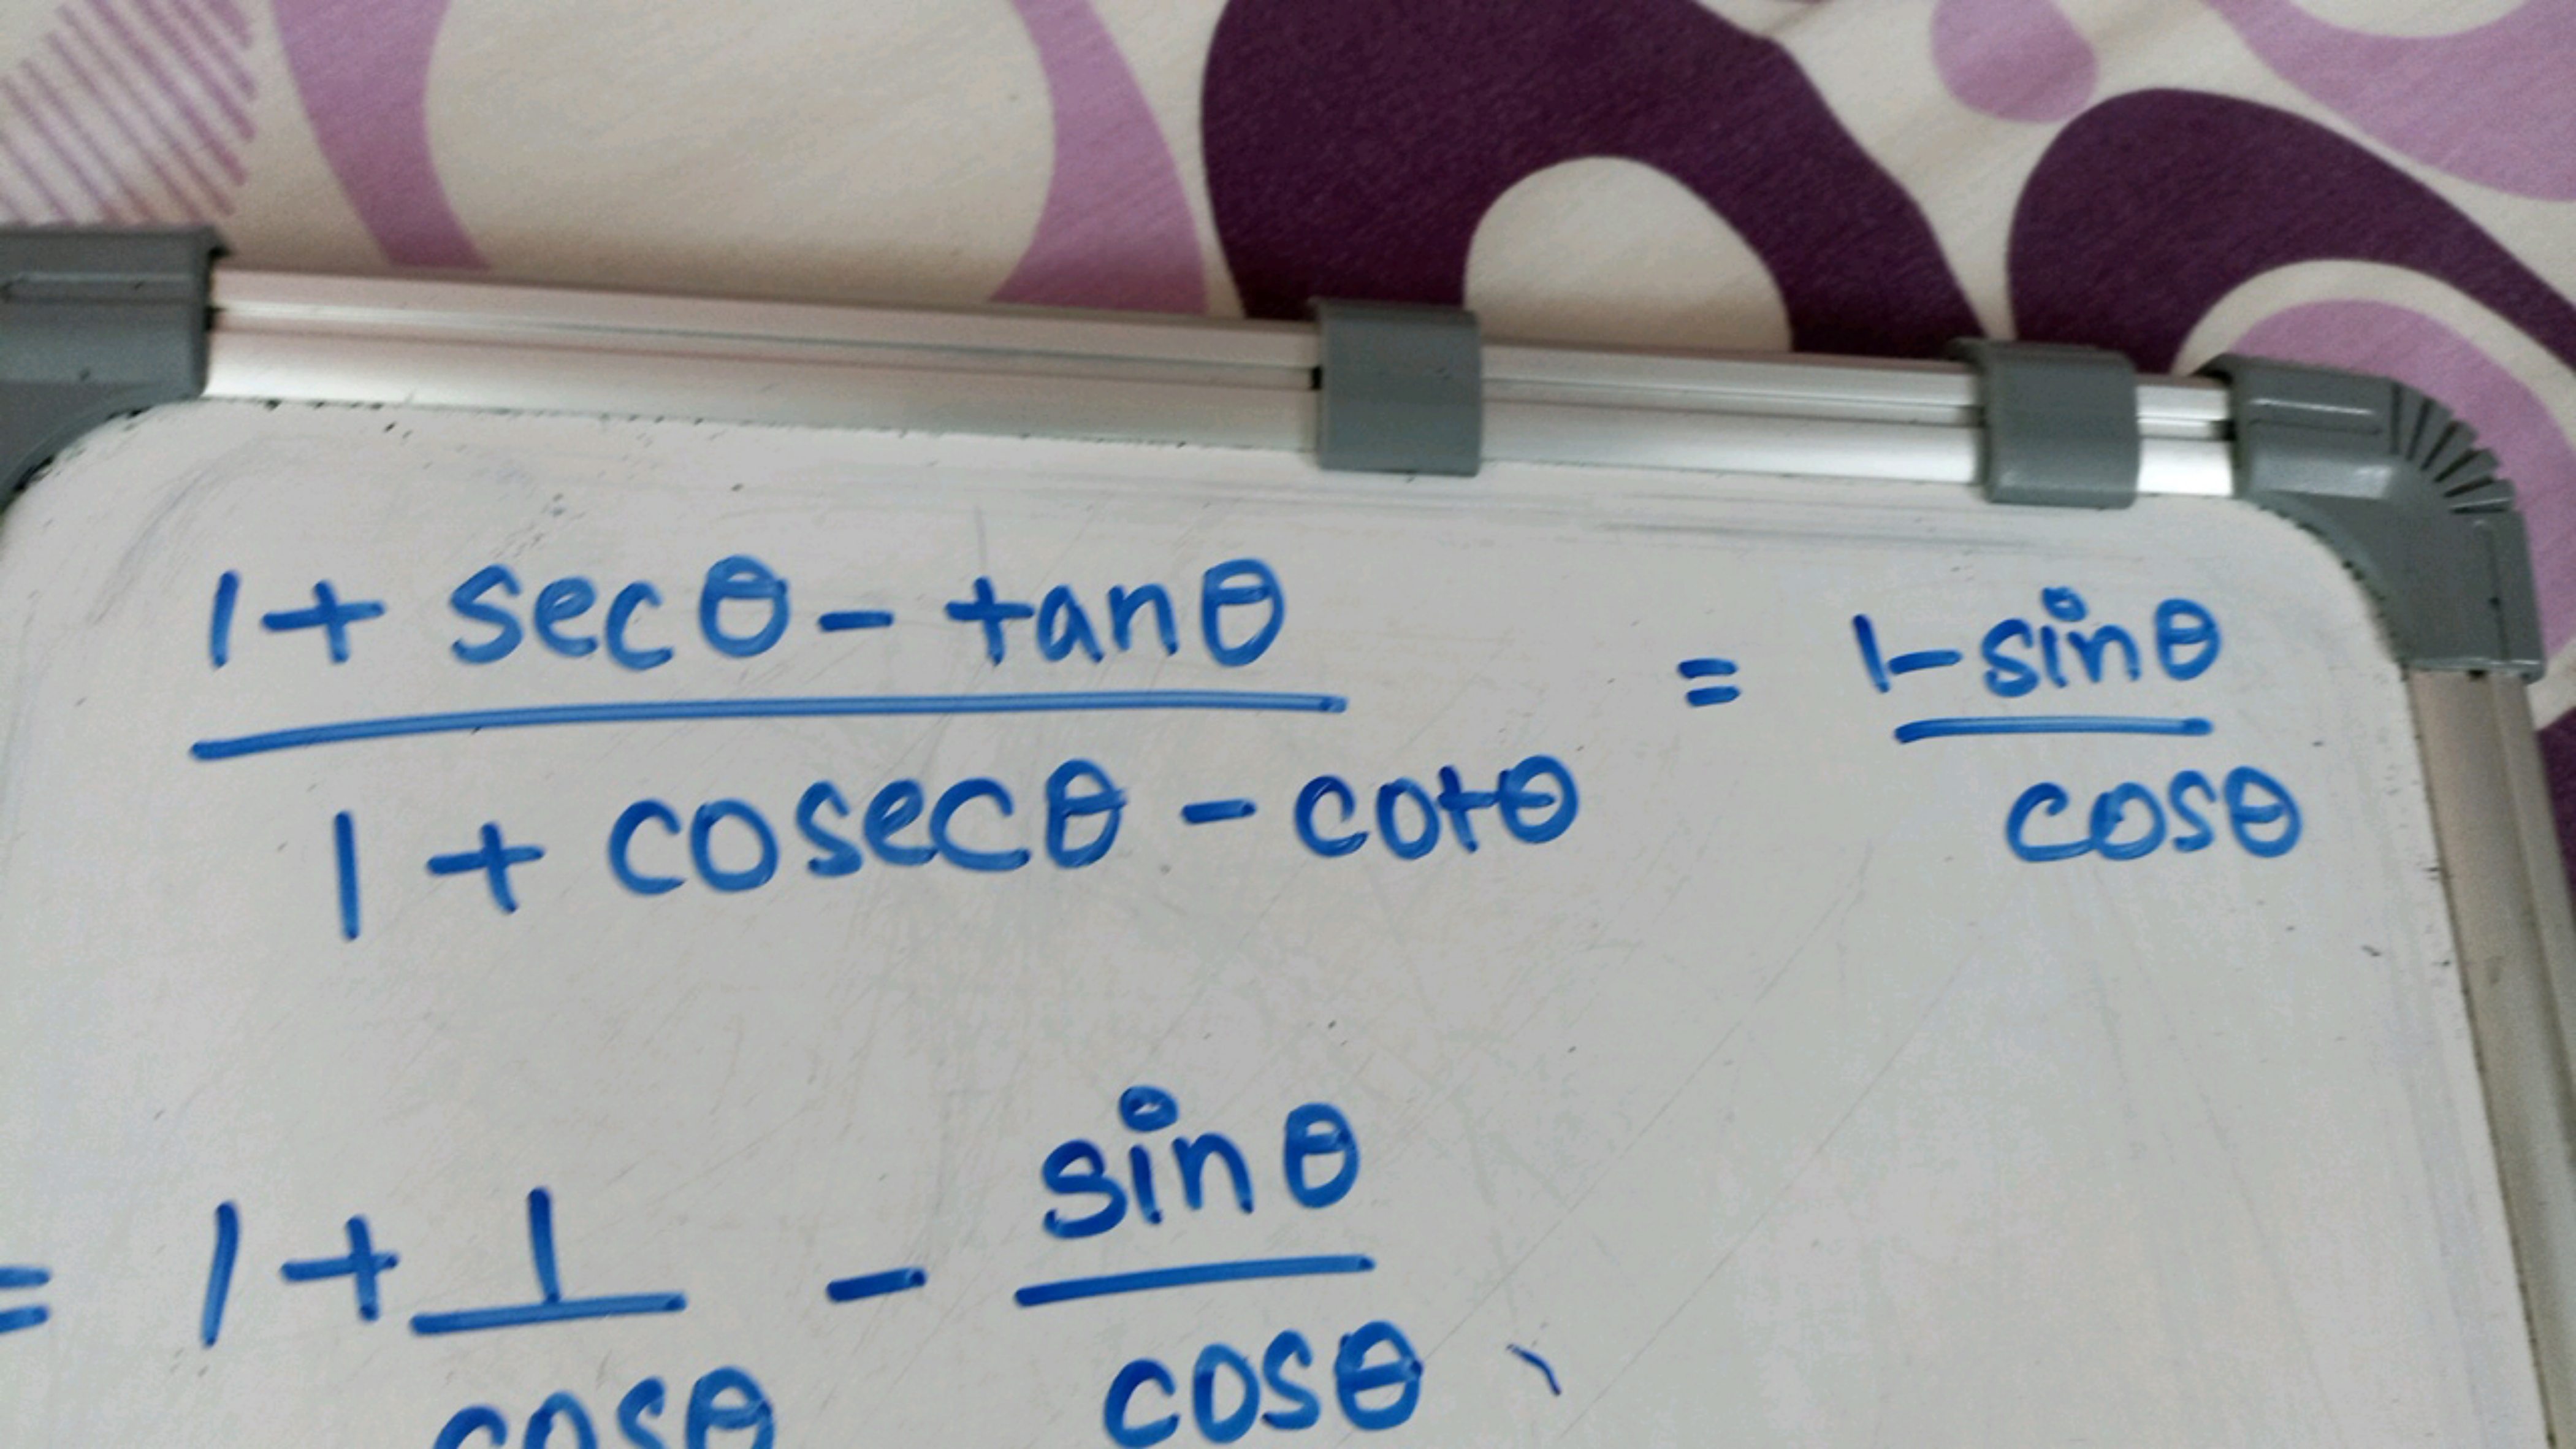 1 + secθ - tanθ / 1 + cosecθ - cotθ = 1 - sinθ / cosθ
= 1 + 1 / cosθ - sinθ / cosθ